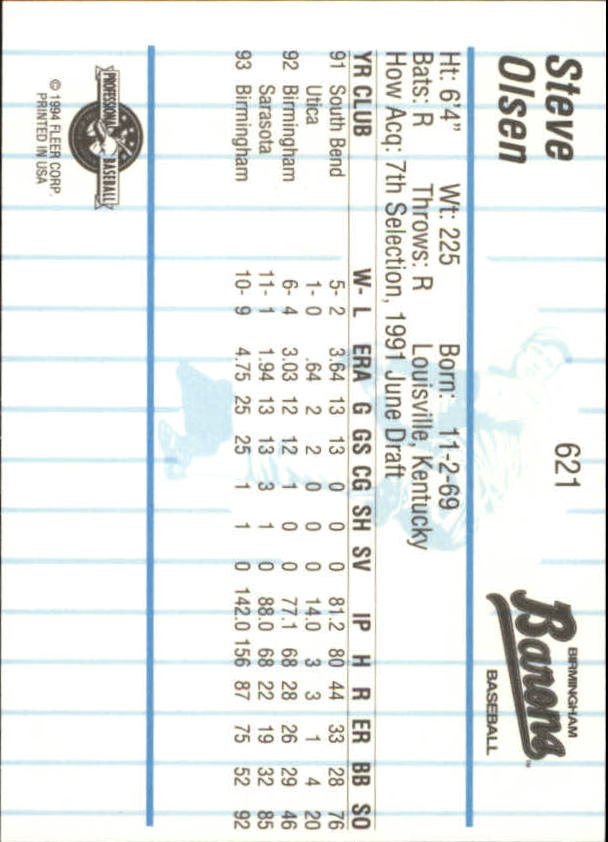 Steve
Olsen
621
BIRMINGHAM
Barons™
BASEBALL
Ht: 6'4" Wt: 225 Born: 11-2-69
Bats: R Throws: R Louisville, Kentucky
How Acq: 7th Selection, 1991 June Draft
YR CLUB W- L ERA G GS CG SH SV IP H R ER BB SO
91 South Bend 5- 2 3.64 13 13 0 0 0 81.2 80 44 33 28 76
Utica 1- 0 .64 2 2 0 0 0 14.0 3 3 1 4 20
92 Birmingham 6- 4 3.03 12 12 1 0 0 77.1 68 28 26 29 46
Sarasota 11- 1 1.94 13 13 3 1 0 88.0 68 22 19 32 85
93 Birmingham 10- 9 4.75 25 25 1 1 0 142.0 156 87 75 52 92
PROFESSIONAL BASEBALL
© 1994 FLEER CORP.
PRINTED IN USA